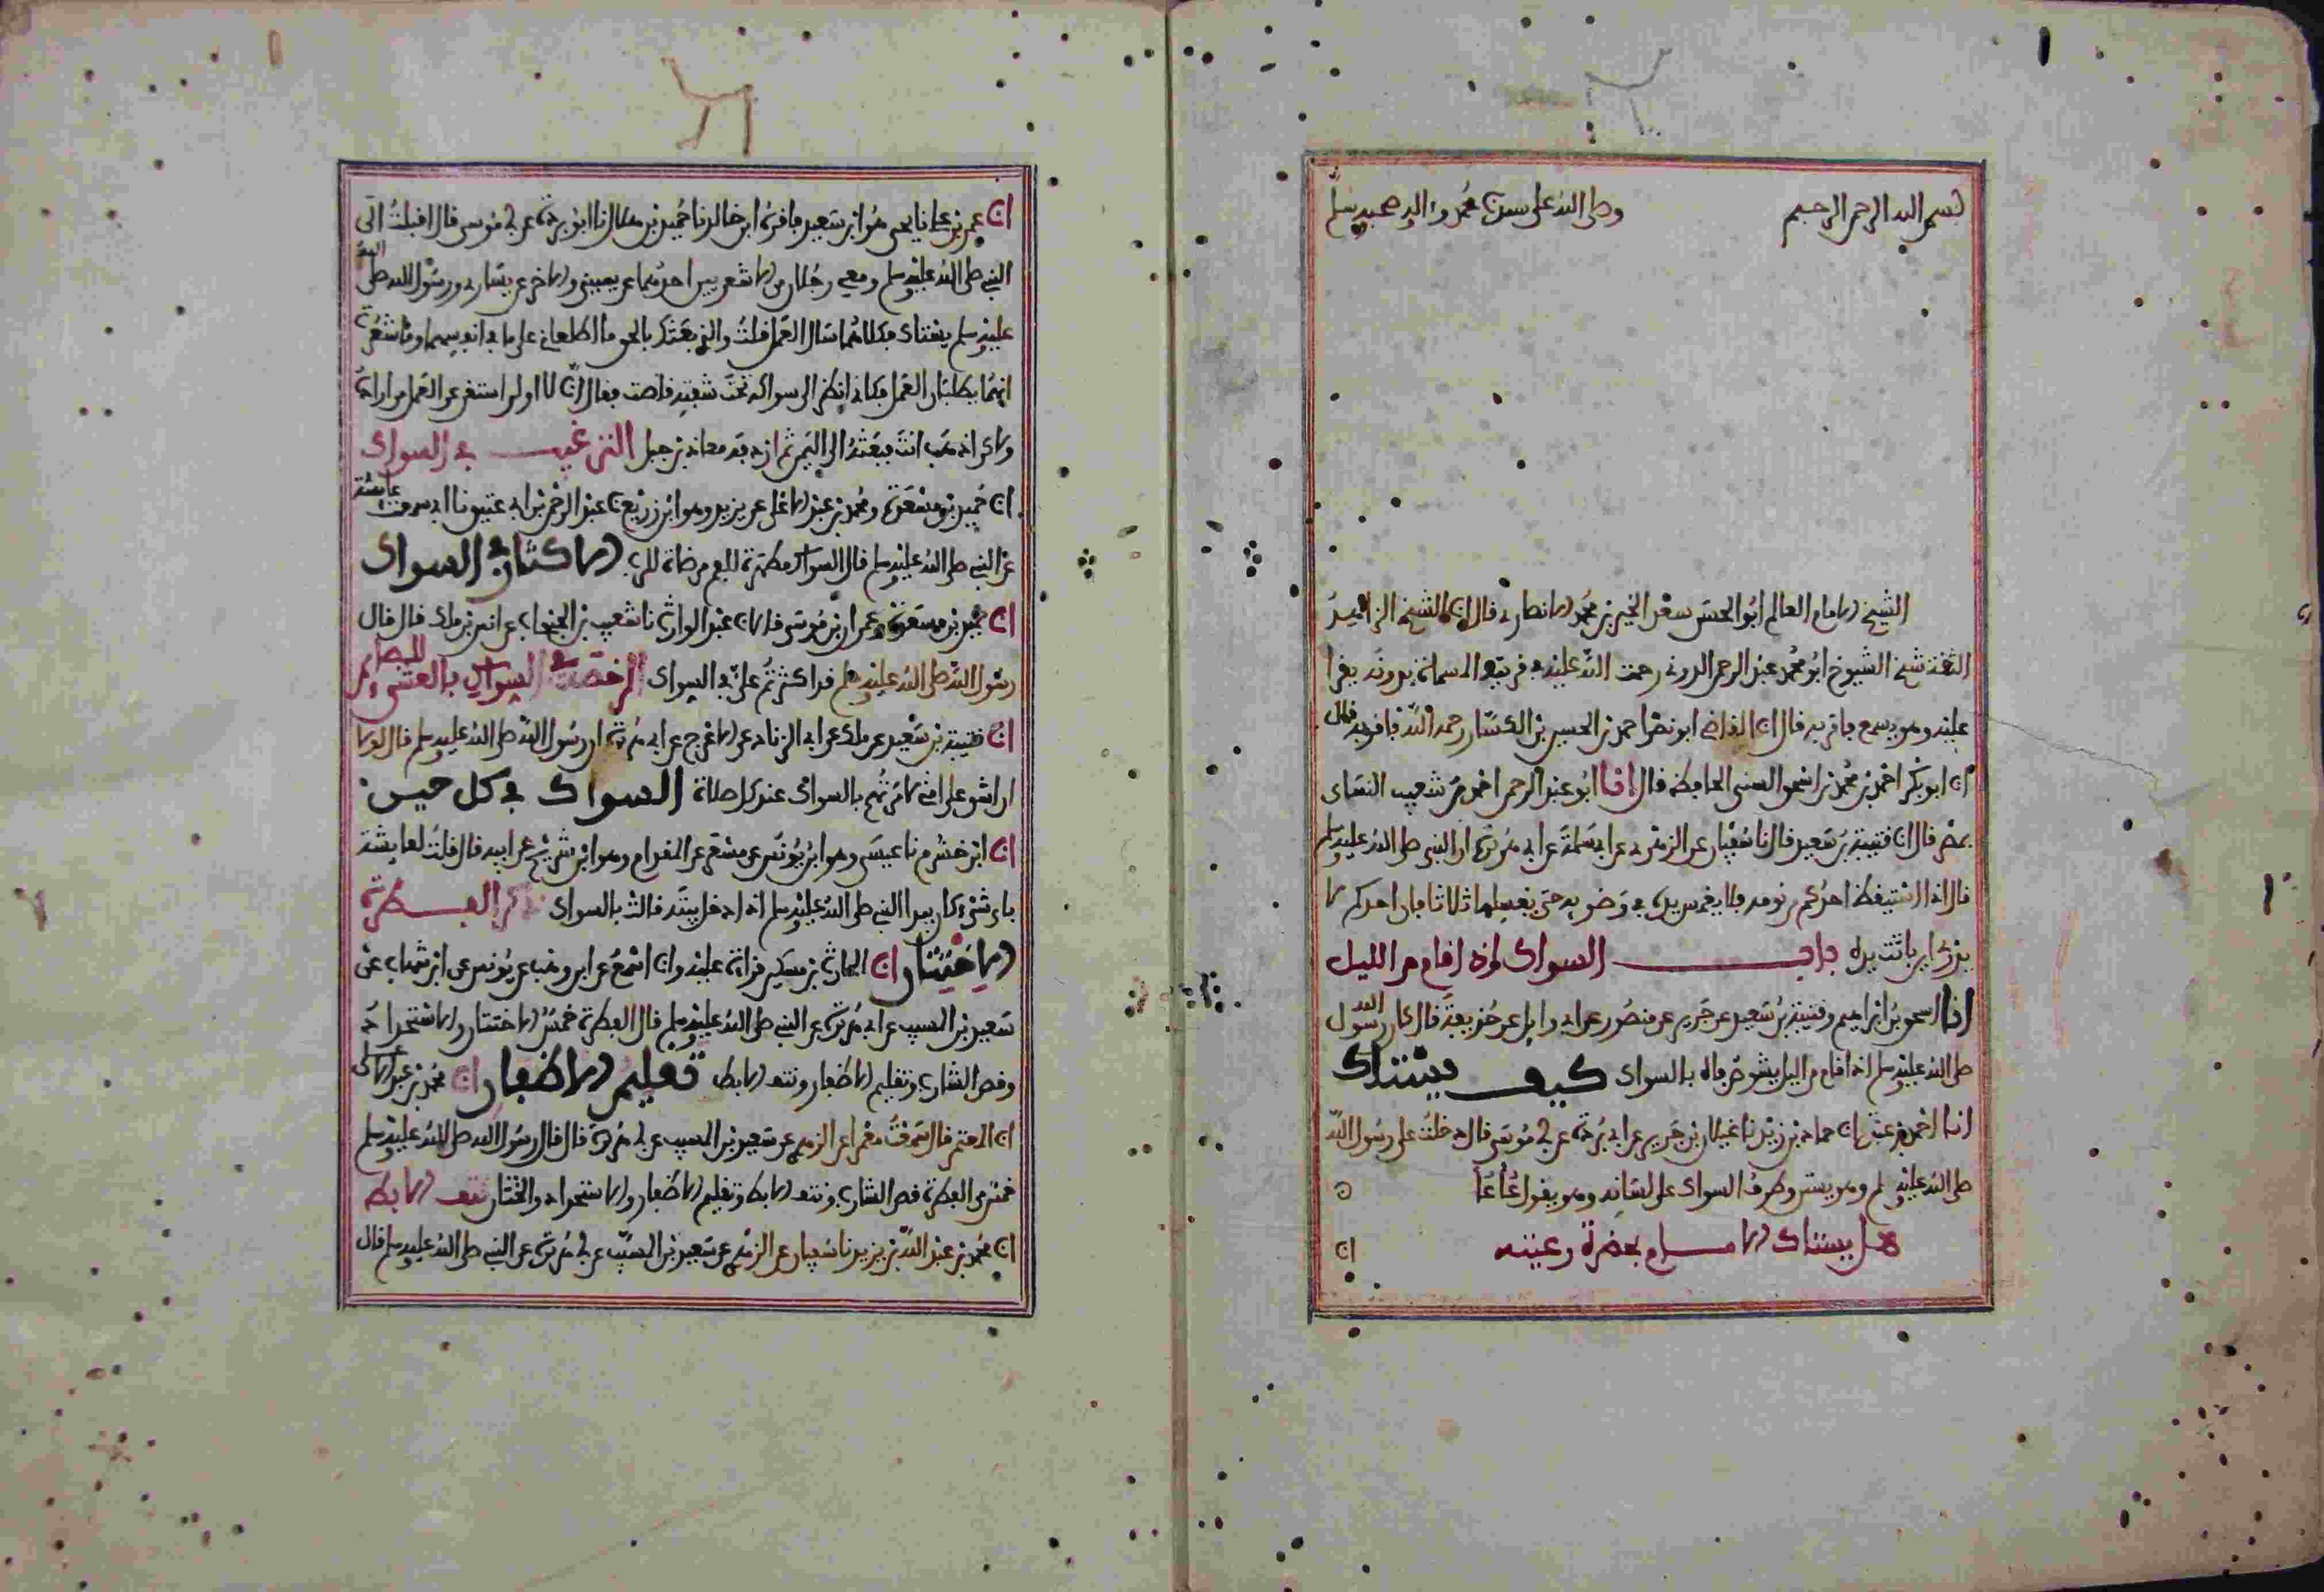 بسم الله الرحمن الرحيم وصلى الله على سيدنا محمد وءاله وصحبه وسلم
الشيخ الامام العالم ابو الحسن سعد الخير بن محمد الانصاري قال انا الشيخ الزاهد
الثقة شيخ الشيوخ ابو محمد عبد الرحمن الدوني رحمت الله عليه في قريته بدونه يقرا
عليه وهو يسمع فاقر به قال انا القاضي ابو نصر احمد بن الحسين بن الكسار رحمه الله فاقر به قال
انا ابو بكر احمد بن محمد بن اسحق السني الحافظ قال انا ابو عبد الرحمن احمد بن شعيب النسائ
بمصر قال انا قتيبة بن سعيد قال نا سفيان عن الزهري عن ابي سلمة عن ابي هريرة ان النبي صلى الله عليه وسلم
قال اذا استيقظ احدكم من نومه فلا يغمس يده في وضوءه حتى يغسلها ثلاثا فان احدكم لا
يدري اين باتت يده باب السواك اذا قام من الليل
انا اسحق بن ابراهيم وقتيبة بن سعيد عن جرير عن منصور عن ابي وايل عن حذيفة قال كان رسول الله
صلى الله عليه وسلم اذا قام من اليل يشوص فاه بالسواك كيف يستاك
انا احمد بن عبدة انا حماد بن زيد نا غيلان بن جرير عن ابي بردة عن ابي موسى قال دخلت على رسول الله
صلى الله عليه وسلم وهو يستن وطرف السواك على لسانه وهو يقول عأعأ
هل يستاك الامام بحضرة رعيته انا
انا عمرو بن علي نا يحيى هو ابن سعيد نا قرة ابن خالد نا حميد بن هلال نا ابو بردة عن ابي موسى قال اقبلت الى
النبي صلى الله عليه وسلم ومعي رجلان من الاشعريين احدهما عن يميني والاخر عن يساري ورسول الله صلى الله
عليه وسلم يستاك فكلاهما سال العمل قلت والذي بعثك بالحق ما اطلعاني على ما في انفسهما وما شعرت
انهما يطلبان العمل فكاني انظر الى سواكه تحت شفته قلصت فقال انا لا او لن استعن على العمل من اراده
ولاكن اذهب انت فبعثه الى اليمن ثم اردفه معاذ بن جبل الترغيب في السواك
انا حميد بن مسعدة ومحمد بن عبد الاعلى عن يزيد وهو ابن زريع نا عبد الرحمن بن ابي عتيق نا ابي سمعت عايشة
عن النبي صلى الله عليه وسلم قال السواك مطهرة للفم مرضاة للرب الاكثار في السواك
انا حميد بن مسعدة وعمران بن موسى قالا نا عبد الوارث نا شعيب بن الحبحاب عن انس بن ملك قال قال
رسول الله صلى الله عليه وسلم قد اكثرتم علي في السواك الرخصة في السواك بالعشي للصائم
انا قتيبة بن سعيد عن ملك عن ابي الزناد عن الاعرج عن ابي هريرة ان رسول الله صلى الله عليه وسلم قال لولا
ان اشق على امتي لامرتهم بالسواك عند كل صلاة السواك في كل حين
انا ابن خشرم نا عيسى وهو ابن يونس عن مسعر عن المقدام وهو ابن شريح عن ابيه قال قلت لعايشة
باي شيء كان يبدا النبي صلى الله عليه وسلم اذا دخل بيته قالت بالسواك ذكر الفطرة
الاختتان انا الحارث بن مسكين قراءة عليه وانا اسمع عن ابن وهب عن يونس عن ابن شهاب عن
سعيد بن المسيب عن ابي هريرة عن النبي صلى الله عليه وسلم قال الفطرة خمس الاختتان والاستحداد
وقص الشارب وتقليم الاظفار ونتف الابط تقليم الاظفار انا محمد بن عبد الاعلى
انا المعتمر قال سمعت معمرا عن الزهري عن سعيد بن المسيب عن ابي هريرة قال قال رسول الله صلى الله عليه وسلم
خمس من الفطرة قص الشارب ونتف الابط وتقليم الاظفار والاستحداد والختان نتف الابط
انا محمد بن عبد الله بن يزيد نا سفيان عن الزهري عن سعيد بن المسيب عن ابي هريرة عن النبي صلى الله عليه وسلم قال